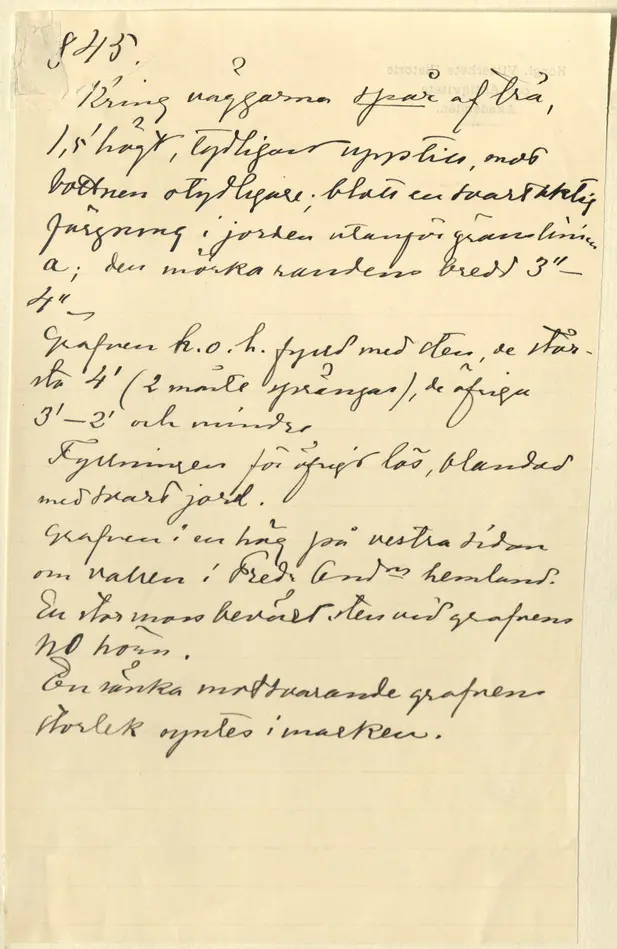 845.
Kring väggarna spår af trä,
1,5' högt, tydligast upptill, mot
bottnen otydligare; blott en svartaktig
färgning i jorden utanför gränslinien
a; den mörka randens bredd 3"–
4"
Grafven h.o.h. fylld med sten, de stör-
sta 4' (2 måste sprängas), de öfriga
3'–2' och mindre
Fyllningen för öfrigt lös, blandad
med svart jord.
Grafven i en hög på vestra sidan
om vallen i Fredr Andns hemland.
En stor mossbeväxt sten vid grafvens
NO hörn.
En sänka motsvarande grafvens
storlek syntes i marken.